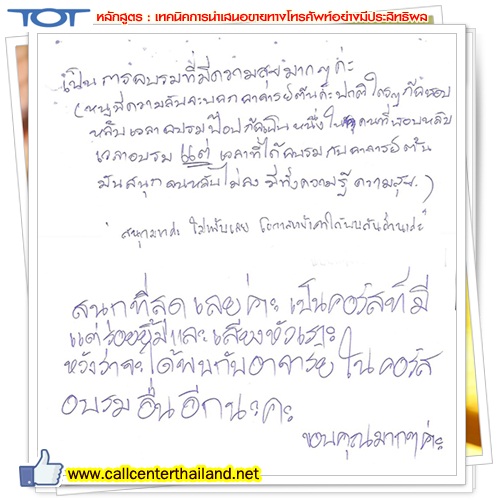 TOT
หลักสูตร : เทคนิคการนำเสนอขายทางโทรศัพท์อย่างมีประสิทธิผล
เป็นการอบรมที่มีความสุขมากๆค่ะ
(หนูมีความลับจะบอกอาจารย์ต้นค่ะปกติใครๆก็ชอบ
หลับเวลาอบรม ป๊อปก็เป็นหนึ่งในคนที่ชอบหลับ
เวลาอบรม แต่ เวลาที่ได้อบรมกับอาจารย์ต้น
มันสนุกจนหลับไม่ลง มีทั้งความรู้ ความสุข.)
"สนุกมากค่ะ ไม่หลับเลย โอกาสหน้าคงได้พบกันอีกนะค่ะ"
สนุกที่สุดเลยค่ะ เป็นคอร์สที่มี
แต่รอยยิ้มและเสียงหัวเราะ
หวังว่าจะได้พบกับอาจารย์ในคอร์ส
อบรมอื่นอีกนะคะ
ขอบคุณมากๆค่ะ
www.callcenterthailand.net